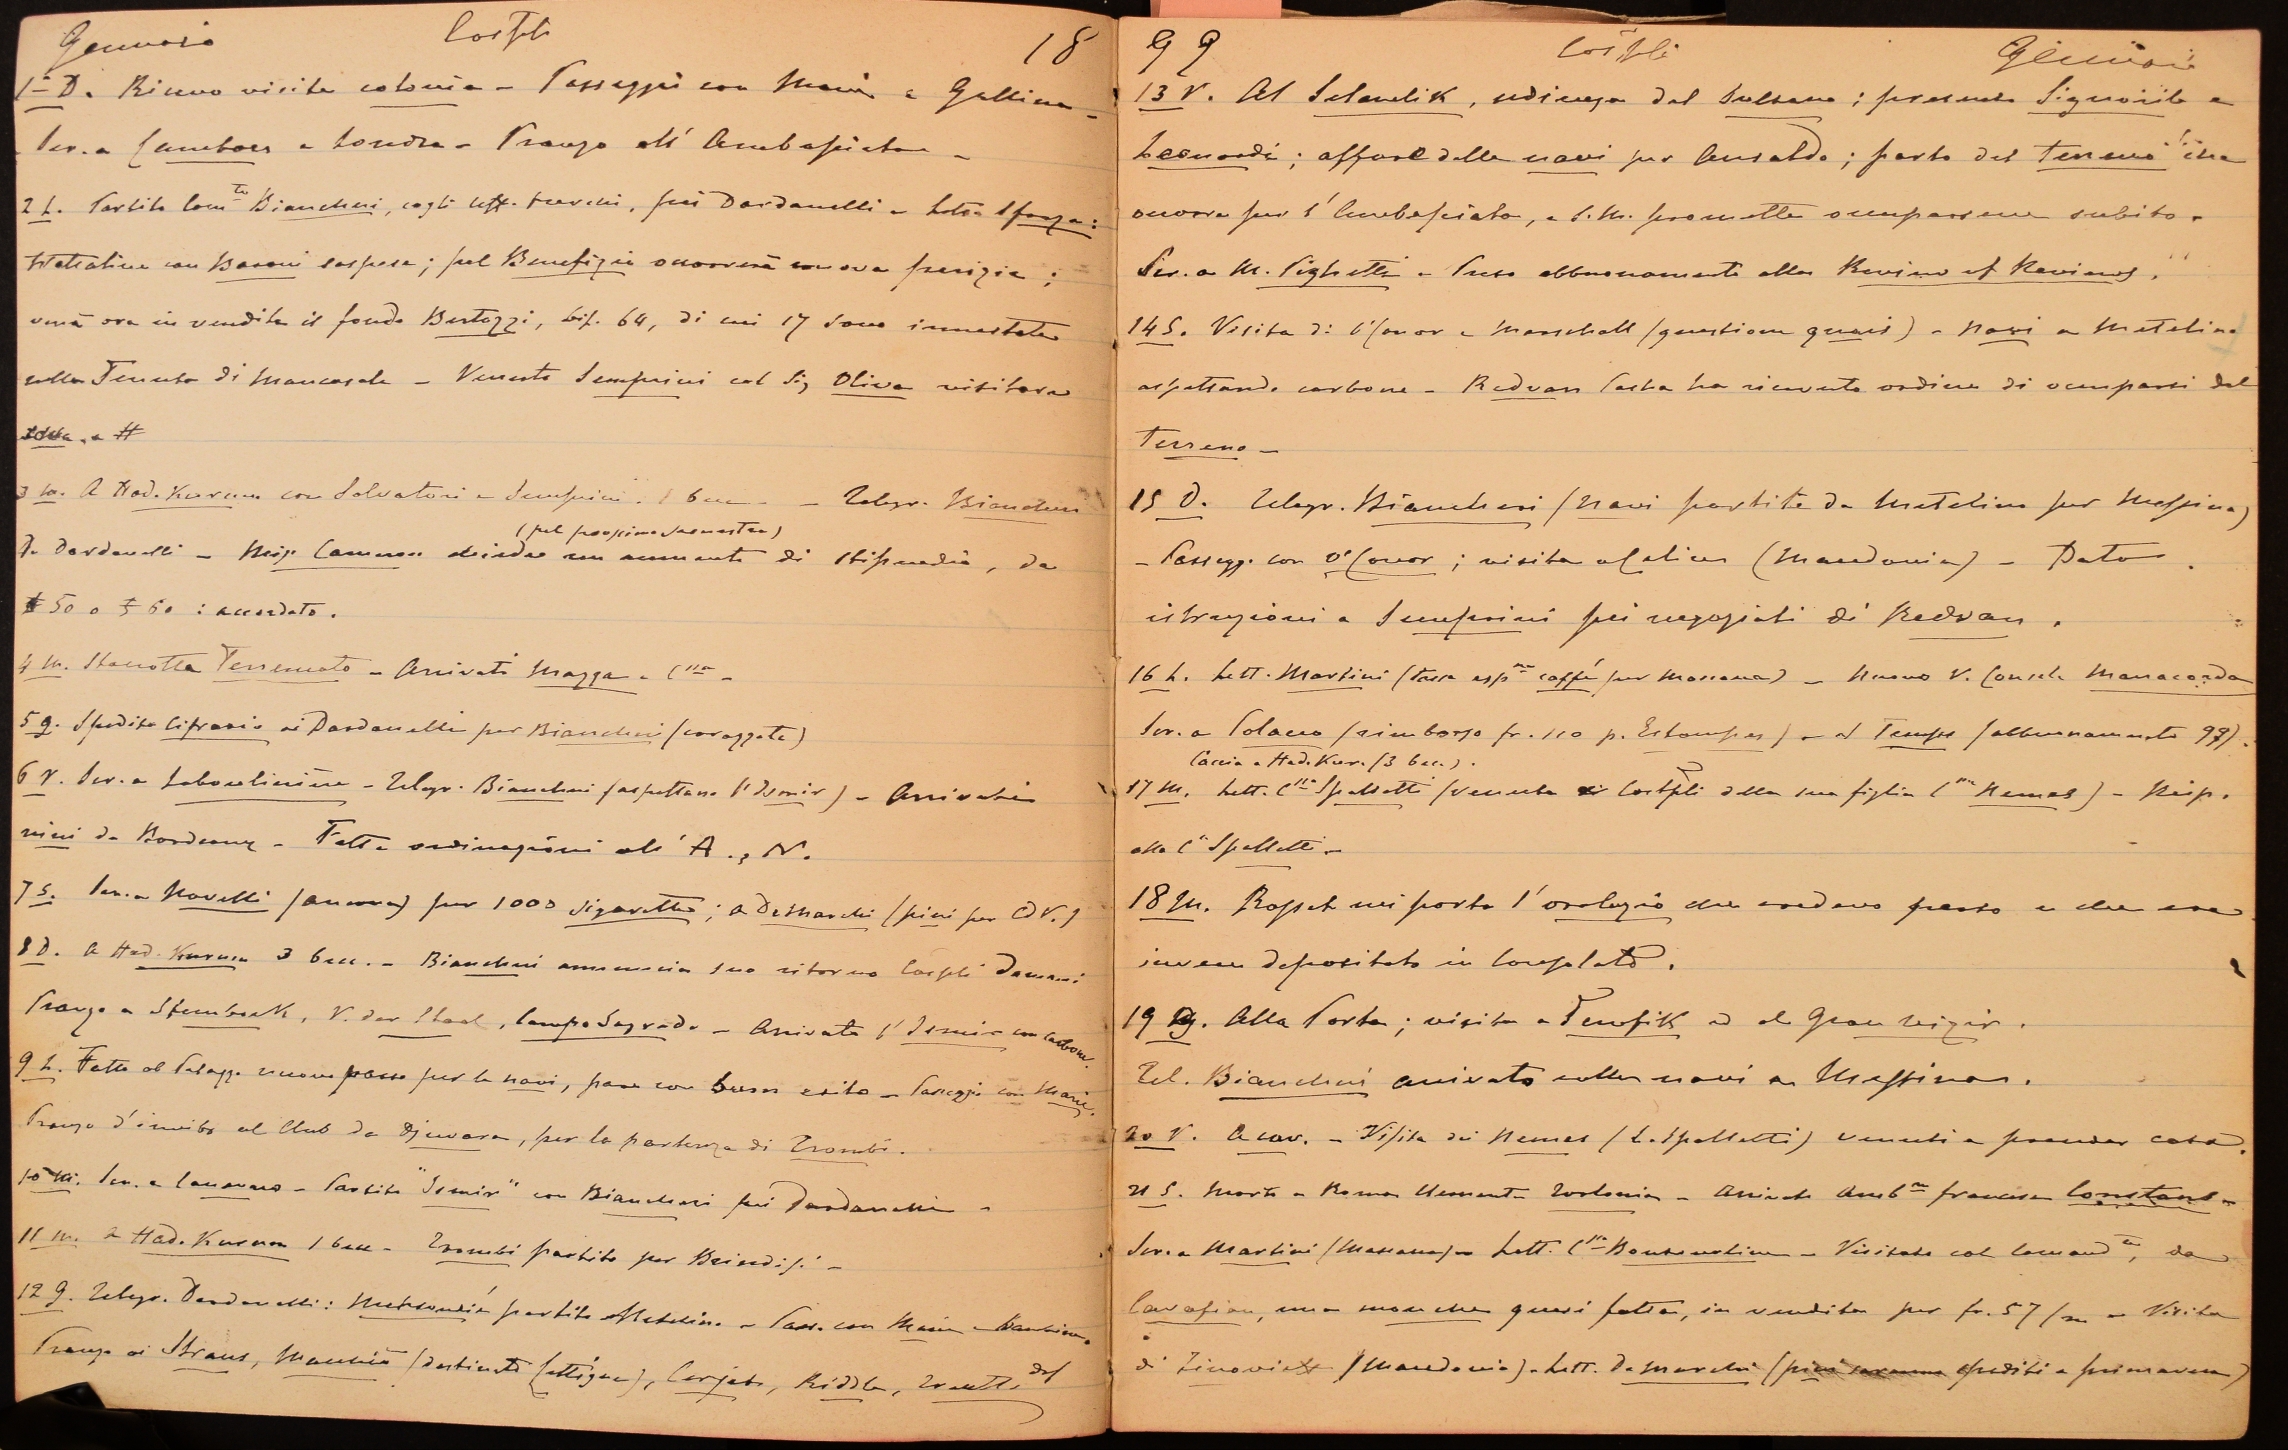 Gennaio Costpli 18
1 D. Ricevo visita colonia – Passeggio con Marie e Gallina –
Scr. a Cambon a Londra – Pranzo all'Ambasciata –
2 L. Partito Com.te Bianchini, cogli uff. turchi, pei Dardanelli – Lett. Sforza:
trattative con Baroni sospese; pel Benefizio occorrerà nuova perizia;
verrà ora in vendita il fondo Bertozzi, bif. 64, di cui 17 sono innestate
nella Tenuta di Mancasale – Venuto Semprini col Sig Oliva visitare
3 M. A Had. Kurum con Salvatori e Semprini. 1 becc. – Telegr. Bianchini
(pel prossimo semestre)
da Dardanelli – Miss Cameron chiede un aumento di stipendio, da
£ 50 a £ 60 : accordato.
4 M. Stanotte Terremoto – Arrivati Mazza e C.ssa –
5 G. Spedito Cifrario ai Dardanelli per Bianchini (corazzate)
6 V. Scr. a Laboulinière – Telegr. Bianchini (aspettano l'Ismir) – Arrivati i
vini da Bordeaux – Fatte ordinazioni all' A. , N.
7 S. Scr. a Novelli (ancora) per 1000 sigarette; a Demarchi (pini per CdV.)
8 D. A Had. Kurum 3 becc. – Bianchini annuncia suo ritorno Costpli domani
Pranzo a Stembock, V. der Staal, Campo Sagrado – Arrivato l'Ismir con carbone.
9 L. Fatto al Palazzo nuovo passo per le navi, pare con buon esito – Passeggio con Marie.
Pranzo d'invito al Club da Djuvara, per la partenza di Trombi.
10 M. Scr. a Canevaro – Partito "Ismir" con Bianchini pei Dardanelli –
11 M. A Had. Kurum 1 becc – Trombi partito per Brindisi –
12 G. Telegr. Dardanelli: partito Metelino – Pass. con Marie e bambino.
Pranzo ai Straus, (destinato Cettigne), , Riddle,
99 Costpli Gennaio
13 V. Al Selamlik, udienza dal Sultano; presento Signorile e
Leonardi; affare delle navi per Ansaldo; parlo del terreno che
occorre per l'Ambasciata, e S.M. promette occuparsene subito.
Scr. a M. Pighetti – Preso abbuonamento alla Review of Reviews.
14 S. Visita di O'Conor e Marschall (questione quais) – Navi a Metelino
aspettando carbone – Redvan Pasha ha ricevuto ordine di occuparsi del
Terreno –
15 D. Telegr. Bianchini (navi partite da Metelino per Messina)
– Passegg. con O'Conor; visita a Calice (Macedonia) – Dato
istruzioni a Semprini pei negoziati di Redvan.
16 L. Lett. Martini (tassa esp.ne caffè per Massaua) – Nuovo V. Console Manacorda
Scr. a Polacco (rimborso fr. 110 p. Estampes) – al Temps (abbuonamento 99).
Caccia a Had. Kur. (3 becc.).
17 M. Lett. C.ssa Spalletti (venuta a Costpli della sua figlia C.ssa Nemes) – Risp.
alla C.ssa Spalletti –
18 M. Rosset mi porta l'orologio che credevo perso e che era
invece depositato in Consolato.
19 G. Alla Porta; visita a Tewfik ed al Gran Vizir.
Tel. Bianchini arrivato colle navi a Messina.
20 V. A cav. – Visita dei Nemes (L. Spalletti) venuti a prender casa.
21 S. Morto a Roma Clemente Torlonia – Arrivato Amb.re francese Constans –
Scr. a Martini (Massaua) – Lett. C.ssa – Visitato col Comand.te, da
, una mouche quasi fatta, in vendita per fr. 57/m – Visita
di (Macedonia) – Lett. Demarchi (pini saranno spediti a primavera)